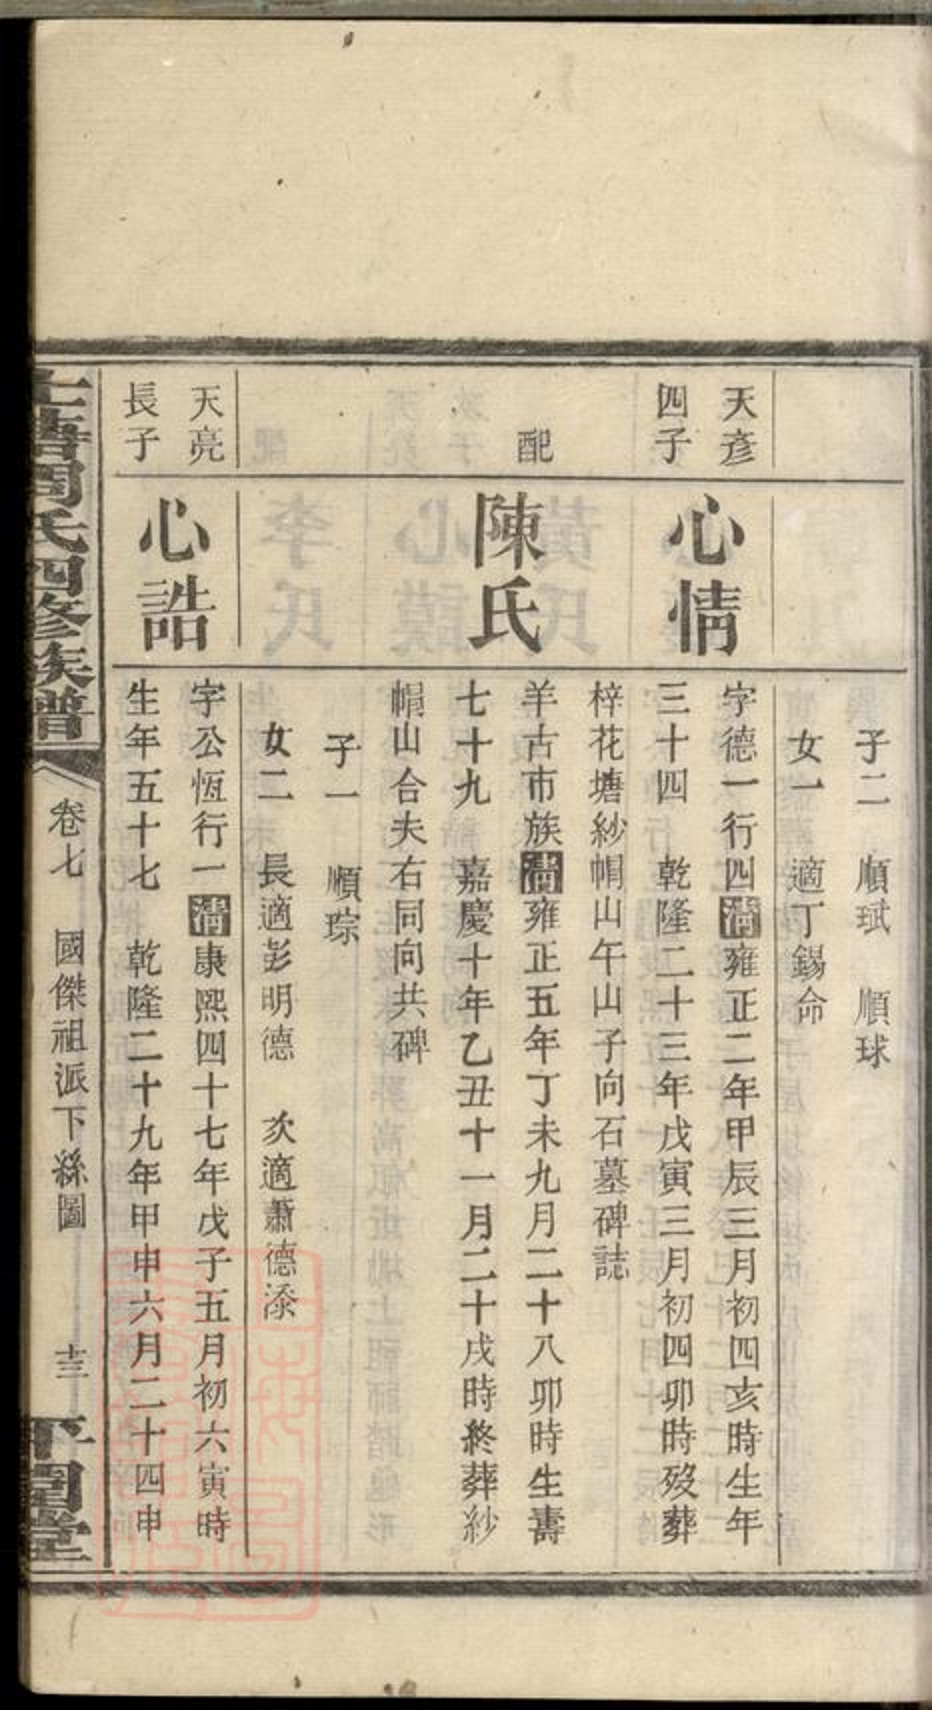 子二 順珷 順球
女一 適丁錫命
天彥
四子
心情
字德一行四清雍正二年甲辰三月初四亥時生年
三十四 乾隆二十三年戊寅三月初四卯時歿葬
梓花塘紗帽山午山子向石墓碑誌
配
陳氏
羊古市族清雍正五年丁未九月二十八卯時生壽
七十九 嘉慶十年乙丑十一月二十戌時終葬紗
帽山合夫右同向共碑
子一 順琮
女二 長適彭明德 次適蕭德添
天亮
長子
心誥
字公恆行一清康熙四十七年戊子五月初六寅時
生年五十七 乾隆二十九年甲申六月二十四申
周氏四修族譜
卷七 國傑祖派下綵圖 十三